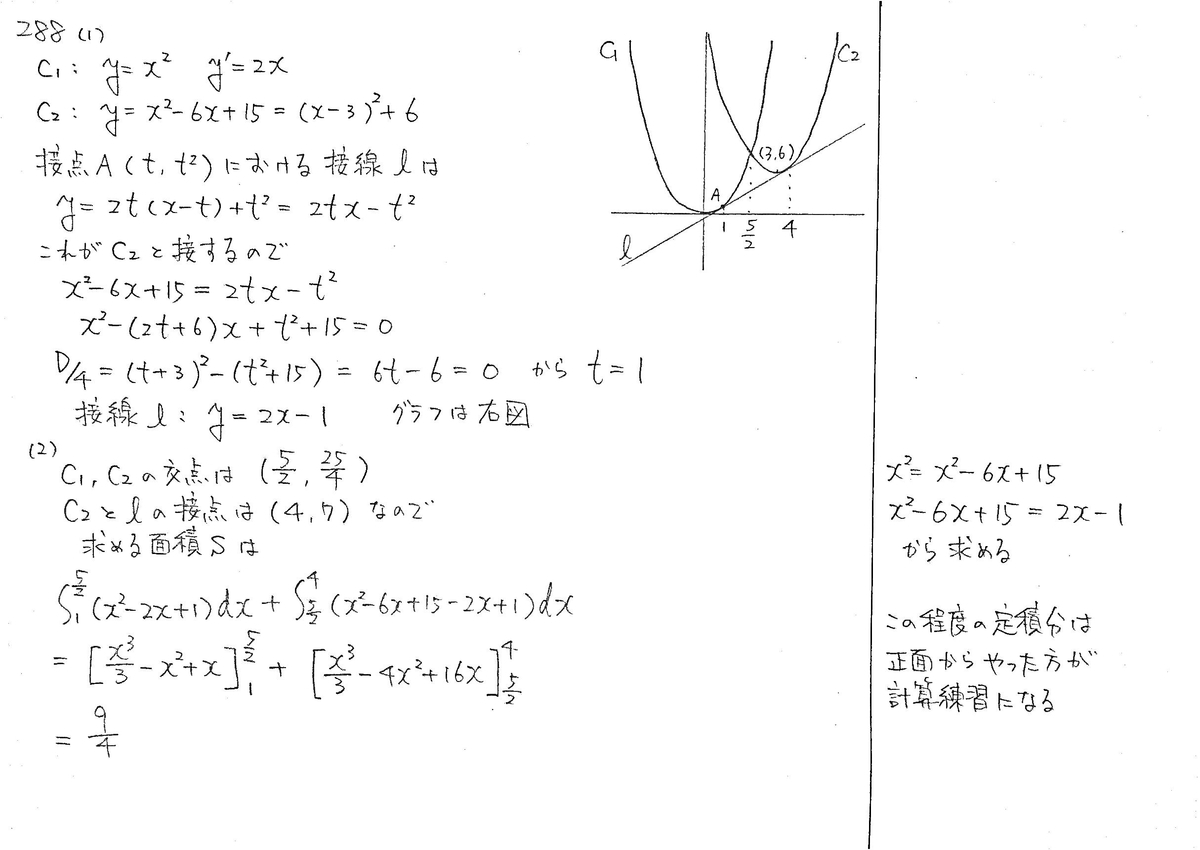 288 (1)
C₁: y = x² y' = 2x
C₂: y = x²-6x+15 = (x-3)²+6
接点A(t, t²)における接線lは
y = 2t(x-t)+t² = 2tx-t²
これがC₂と接するので
x²-6x+15 = 2tx-t²
x²-(2t+6)x+t²+15=0
D/4 = (t+3)²-(t²+15) = 6t-6=0 から t=1
接線l: y=2x-1 グラフは右図
(2)
C₁, C₂の交点は (5/2, 25/4)
C₂とlの接点は (4, 7) なので
求める面積Sは
∫₁^{5/2}(x²-2x+1)dx + ∫_{5/2}^4(x²-6x+15-2x+1)dx
= [x³/3-x²+x]₁^{5/2} + [x³/3-4x²+16x]_{5/2}^4
= 9/4
C₁
C₂
(3,6)
A
1
5/2
4
l
x²=x²-6x+15
x²-6x+15=2x-1
から求める
この程度の定積分は
正面からやった方が
計算練習になる